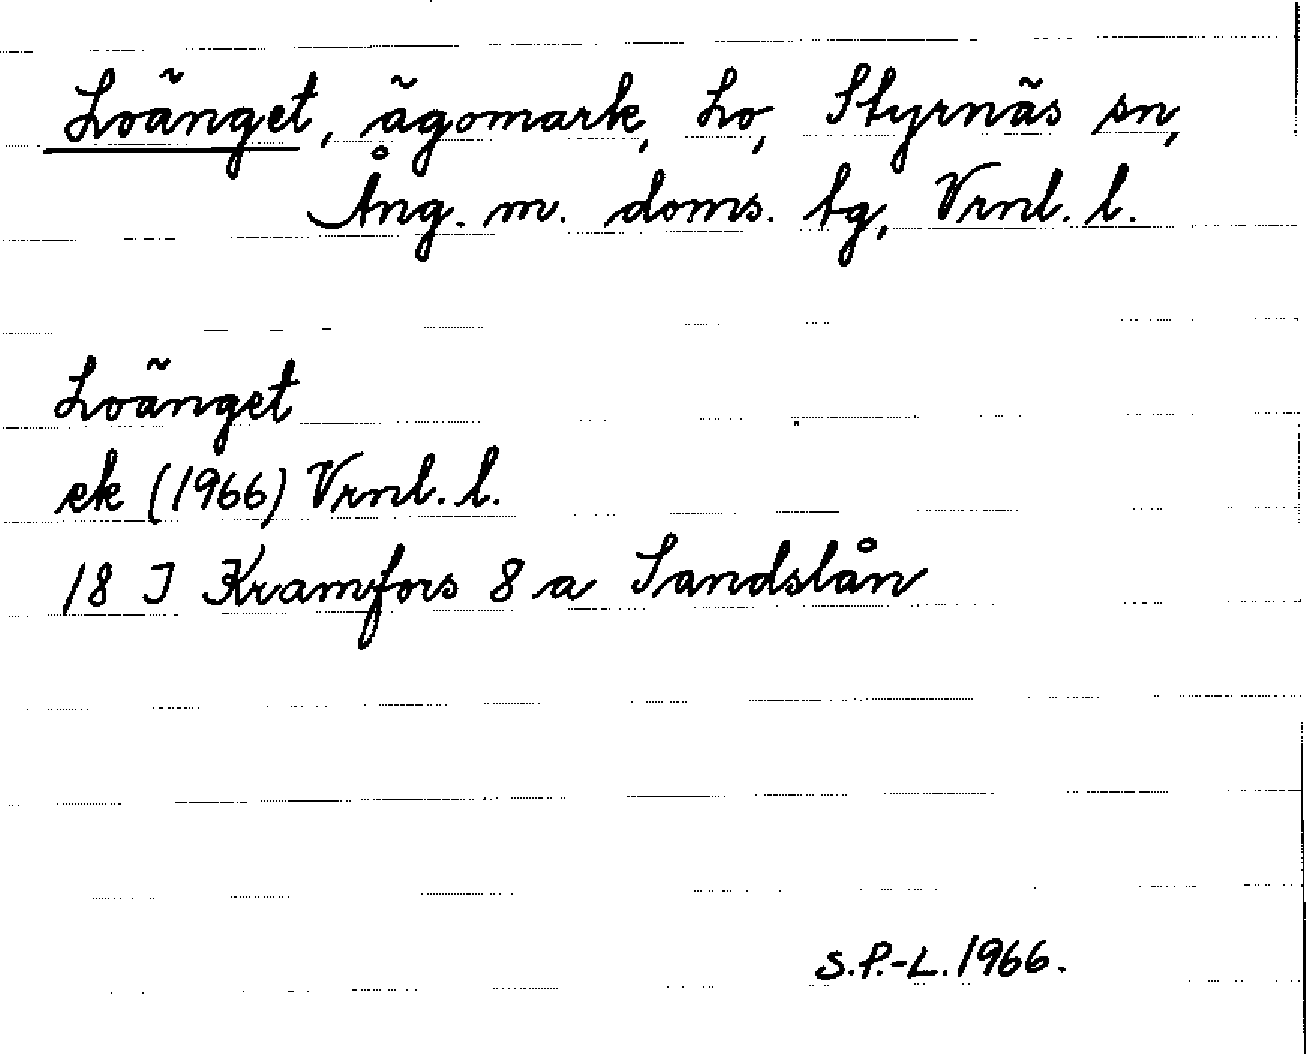 Loänget, ägomark, Lo, Styrnäs sn,
Ång. m. doms. tg, Vrnl. l.
Loänget
ek (1966) Vrnl. l.
18 I Kramfors 8 a Sandslån
S.P.-L. 1966.